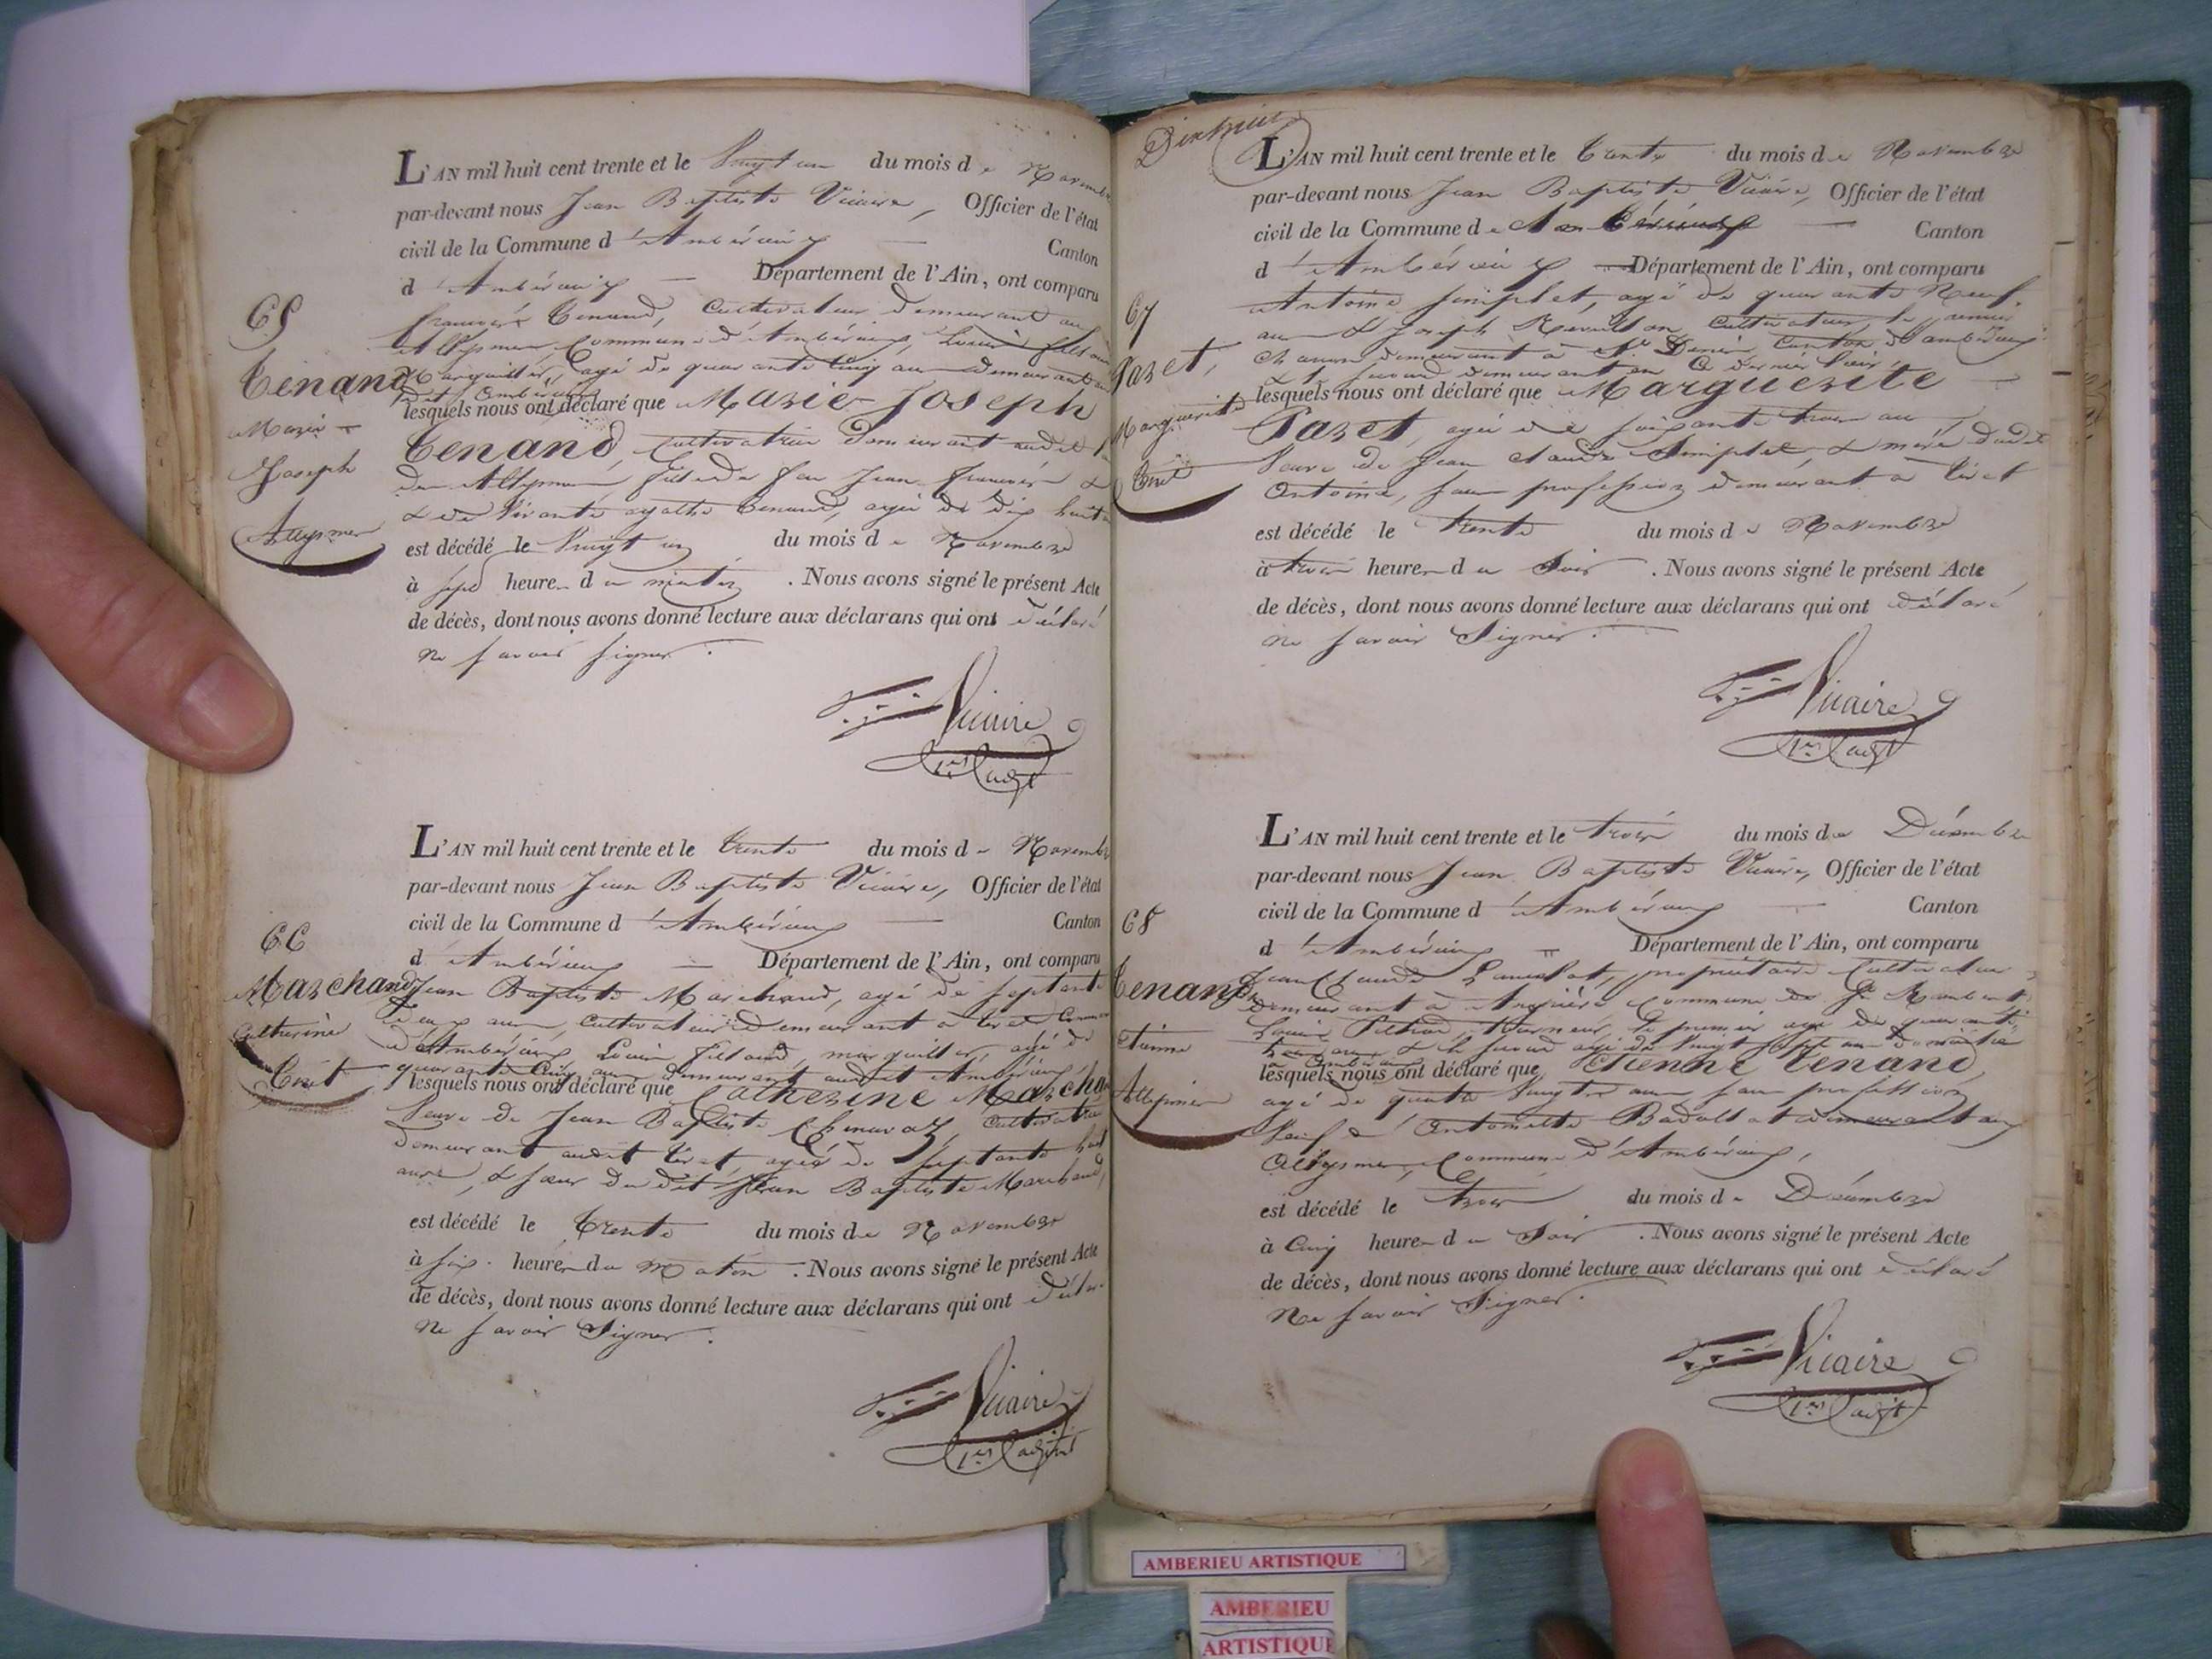 L'AN mil huit cent trente et le Vingt un du mois de Novembre
par-devant nous Jean Baptiste Vicaire, Officier de l'état
civil de la Commune d'Ambérieux Canton
d'Ambérieux Département de l'Ain, ont comparu
65
françois Tenand, Cultivateur demeurant au
Allymes, Commune d'Ambérieux, Louis
Marguiller, agé de quarante cinq ans demeurant
Tenand
Marie
Joseph
Allymes
lesquels nous ont déclaré que Marie Joseph
Tenand, Cultivatrice demeurant audit
des Allymes, fille de feu Jean françois &
& de Vivante agathe Tenand, agée de dix huit
est décédé le Vingt un du mois de Novembre
à sept heures du matin. Nous avons signé le présent Acte
de décès, dont nous avons donné lecture aux déclarans qui ont déclaré
ne savoir signer.
Vicaire
1er Adjt
L'AN mil huit cent trente et le trente du mois de Novembre
par-devant nous Jean Baptiste Vicaire, Officier de l'état
civil de la Commune d'Ambérieux Canton
d'Ambérieux Département de l'Ain, ont comparu
66
Marchand
Catherine
Tiret
Jean Baptiste Marchand, agé de septante
deux ans, Cultivateur demeurant à tiret Commune
d'Ambérieux, Louis marguiller, agé de
quarante Cinq ans demeurant audit Ambérieux
lesquels nous ont déclaré que Catherine Marchand
Veuve de Jean Baptiste Chenavaz, Cultivatrice
demeurant audit tiret, agée de septante huit
ans, & sœur du dit Jean Baptiste Marchand,
est décédé le trente du mois de Novembre
à six heures du matin. Nous avons signé le présent Acte
de décès, dont nous avons donné lecture aux déclarans qui ont déclaré
ne savoir Signer.
Vicaire
1er Adjoint
Dixhuit
L'AN mil huit cent trente et le trente du mois de Novembre
par-devant nous Jean Baptiste Vicaire, Officier de l'état
civil de la Commune de Canton
d'Ambérieux Département de l'Ain, ont comparu
67
Antoine Simplet, agé de quarante Neuf
ans & Joseph Cultivateur, le premier
demeurant à St Denis, Canton d'ambérieux
& le second demeurant en Ce dernier lieu
Paret,
Marguerite
Tiret
lesquels nous ont déclaré que Marguerite
Paret, agée de soixante trois ans
Veuve de Jean Claude Simplet, & mère dudit
Antoine, sans profession demeurant à tiret
est décédé le trente du mois de Novembre
à trois heures du Soir. Nous avons signé le présent Acte
de décès, dont nous avons donné lecture aux déclarans qui ont déclaré
ne savoir Signer.
Vicaire
1er Adjt
L'AN mil huit cent trente et le trois du mois de Décembre
par-devant nous Jean Baptiste Vicaire, Officier de l'état
civil de la Commune d'Ambérieux Canton
d'Ambérieux Département de l'Ain, ont comparu
68
Tenand
Etienne
Allymes
Jean Claude propriétaire Cultivateur
demeurant à Commune de St Rambert
Louis tourneur, le premier agé de quarante
trois ans & le second agé de Vingt sept ans domicilié
à Ambérieux
lesquels nous ont déclaré que Etienne Tenand,
agé de quatre Vingts ans, sans profession
Veuf d'Antoinette Badollat demeurant aux
Allymes, Commune d'Ambérieux,
est décédé le trois du mois de Décembre
à Cinq heures du Soir. Nous avons signé le présent Acte
de décès, dont nous avons donné lecture aux déclarans qui ont déclaré
Ne savoir Signer.
Vicaire
1er Adjt
AMBERIEU ARTISTIQUE
AMBERIEU
ARTISTIQUE